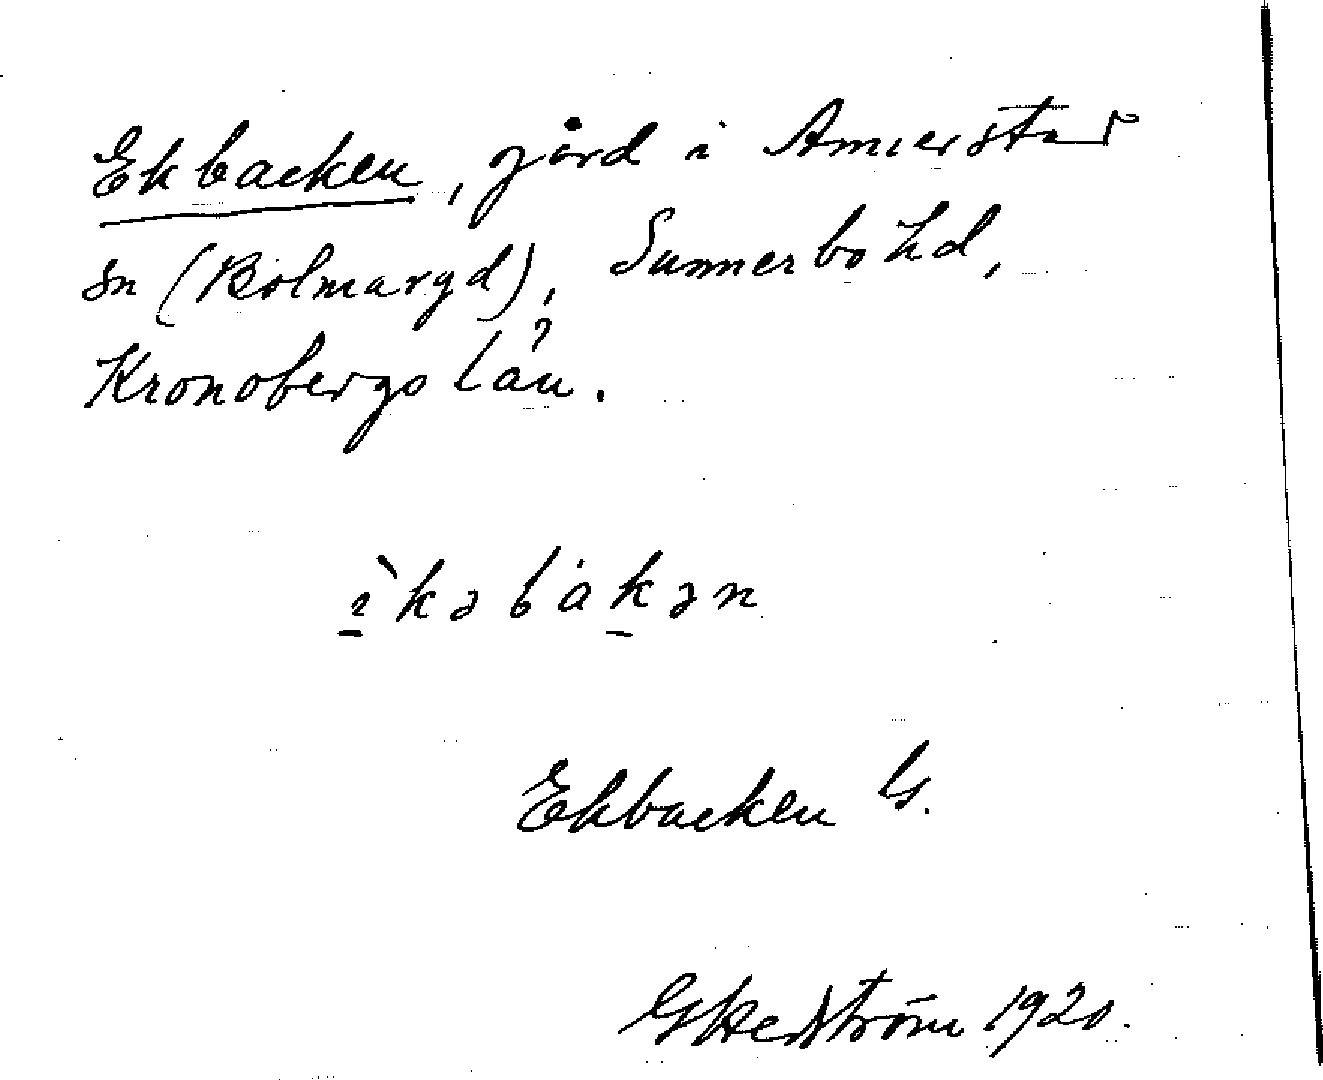 Ekbacken, gård i Annerstad
sn (Bolmaryd), Sunnerbo hd,
Kronobergs län.
ìkəbàkən
Ekbacken G.
GHedström 1920.